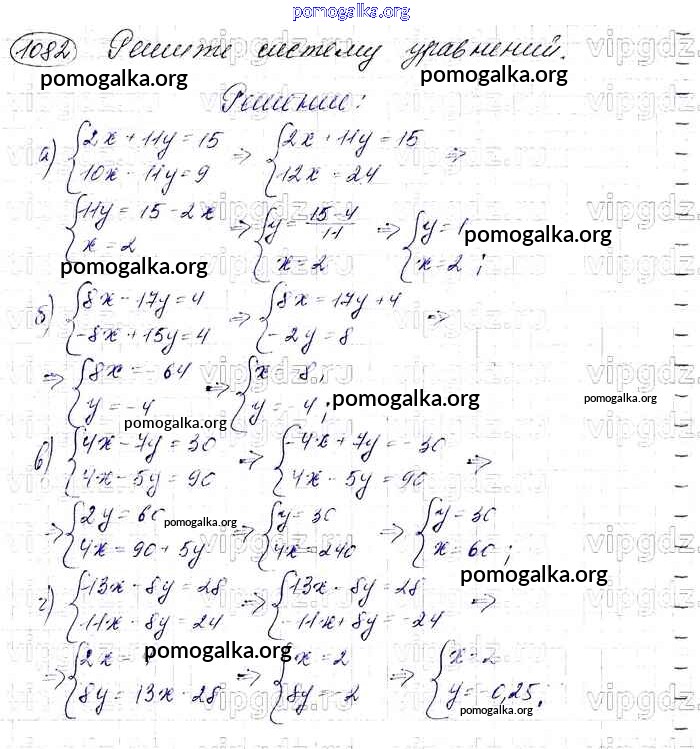 pomogalka.org
1082 Решите систему уравнений.
pomogalka.org pomogalka.org
Решение:
а) {2x + 11y = 15 => {2x + 11y = 15 =>
{10x - 11y = 9 {12x = 24
{11y = 15 - 2x => {y = (15-4)/11 => {y = 1
{x = 2 {x = 2 {x = 2;
pomogalka.org
pomogalka.org
б) {8x - 17y = 4 => {8x = 17y + 4 =>
{-8x + 15y = 4 {-2y = 8
=> {8x = -64 => {x = -8,
{y = -4 {y = -4;
pomogalka.org
pomogalka.org
pomogalka.org
в) {4x - 7y = 30 => {-4x + 7y = -30 =>
{4x - 5y = 90 {4x - 5y = 90
=> {2y = 60 => {y = 30 => {y = 30
{4x = 90 + 5y {4x = 240 {x = 60;
pomogalka.org
pomogalka.org
г) {13x - 8y = 28 => {13x - 8y = 28 =>
{11x - 8y = 24 {-11x + 8y = -24
pomogalka.org
=> {2x = => {x = 2 => {x = 2
{8y = 13x - 28 {8y = -2 {y = -0,25.
pomogalka.org
vipgdz.ru